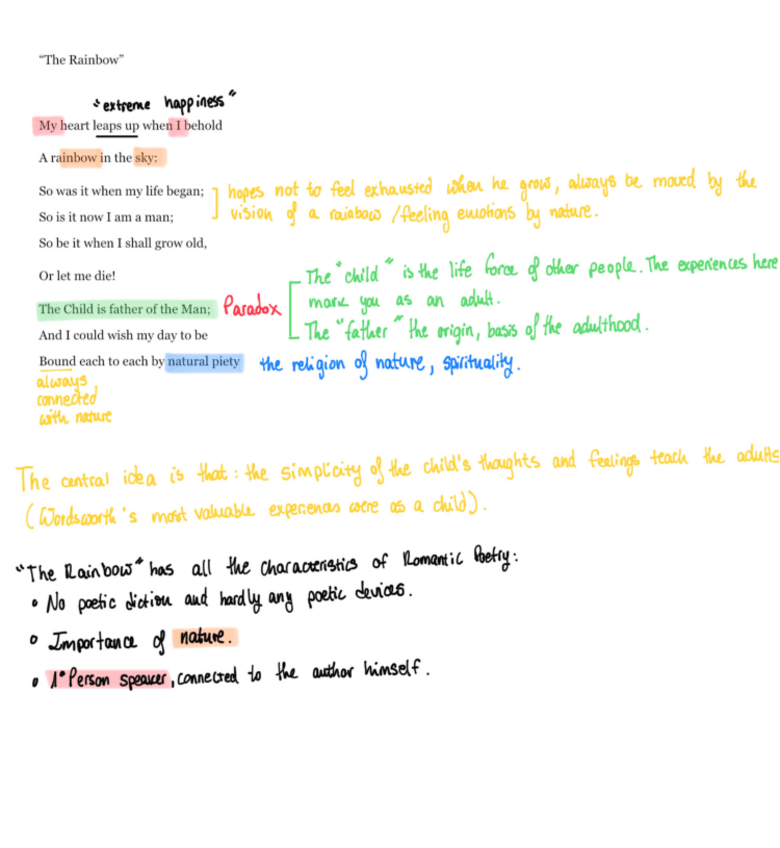 “The Rainbow”
“extreme happiness”
My heart leaps up when I behold
A rainbow in the sky:
So was it when my life began;
So is it now I am a man;
hopes not to feel exhausted when he grow, always be moved by the
vision of a rainbow / feeling emotions by nature.
So be it when I shall grow old,
Or let me die!
The Child is father of the Man;
Paradox
The "child" is the life force of other people. The experiences here
mark you as an adult.
The "father" the origin, basis of the adulthood.
And I could wish my day to be
Bound each to each by natural piety
the religion of nature, spirituality.
always
connected
with nature
The central idea is that: the simplicity of the child's thoughts and feelings teach the adults
(Wordsworth's most valuable experiences were as a child).
"The Rainbow" has all the characteristics of Romantic Poetry:
• No poetic diction and hardly any poetic devices.
• Importance of nature.
• 1° Person speaker, connected to the author himself.